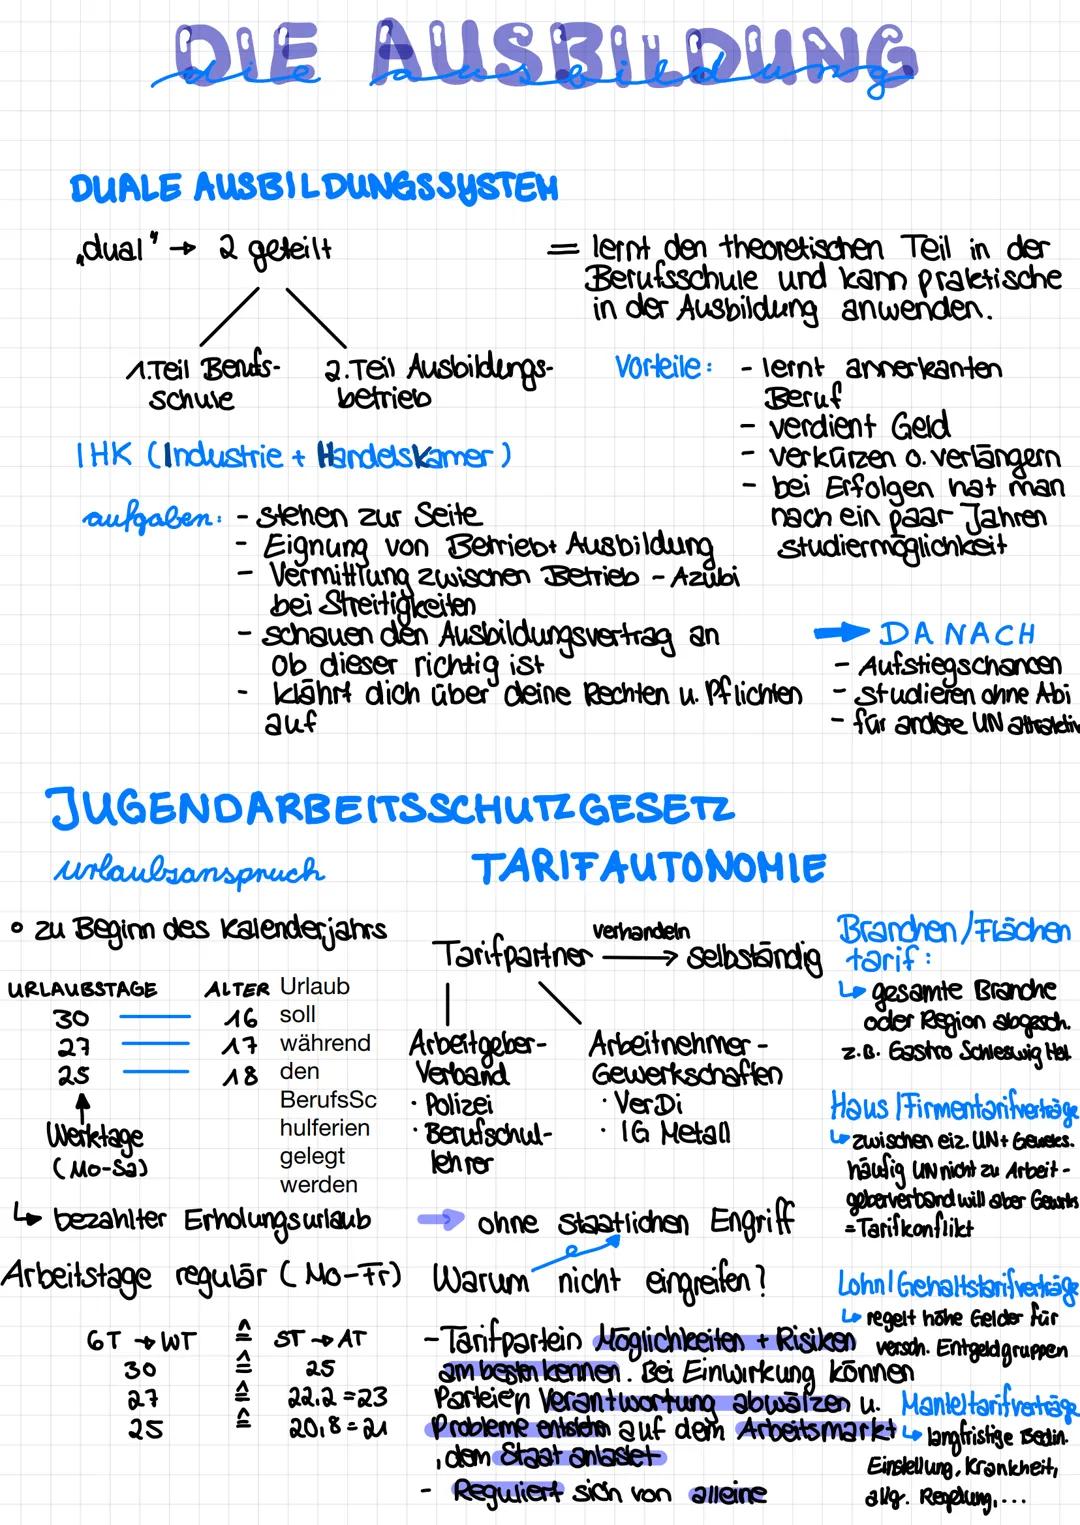 DIE AUSBILDUNG
die ausbildung
DUALE AUSBILDUNGSSYSTEM
„dual" → 2 geteilt
1.Teil Berufs-
schule
2.Teil Ausbildungs-
betrieb
= lernt den theoretischen Teil in der
Berufsschule und kann praktische
in der Ausbildung anwenden.
Vorteile: - lernt annerkanten
Beruf
- verdient Geld
- verkürzen o. verlängern
- bei Erfolgen hat man
nach ein paar Jahren
studiermöglichkeit
IHK (Industrie + Handelskamer)
aufgaben: - stehen zur Seite
- Eignung von Betrieb+ Ausbildung
- Vermittlung zwischen Betrieb - Azubi
bei Streitigkeiten
- schauen den Ausbildungsvertrag an
ob dieser richtig ist
- klährt dich über deine Rechten u. Pflichten
auf
→ DANACH
- Aufstiegschancen
- studieren ohne Abi
- für andere UN attraktiv
JUGENDARBEITSSCHUTZGESETZ
urlaubsanspruch
• zu Beginn des Kalenderjahrs
URLAUBSTAGE ALTER
30 — 16
27 — 17
25 — 18
↑
Werktage
(Mo-Sa)
Urlaub
soll
während
den
BerufsSc
hulferien
gelegt
werden
↳ bezahlter Erholungsurlaub
Arbeitstage regulär (Mo-Fr)
6T → WT ≙ 5T → AT
30 ≙ 25
27 ≙ 22,2 = 23
25 ≙ 20,8 = 21
TARIFAUTONOMIE
Tarifpartner verhandeln → selbständig
Arbeitgeber-
Verband
· Polizei
· Berufschul-
lehrer
Arbeitnehmer-
Gewerkschaften
· VerDi
· IG Metall
→ ohne staatlichen Engriff
Warum nicht eingreifen?
- Tarifpartein Möglichkeiten + Risiken
am besten kennen. Bei Einwirkung können
Parteien Verantwortung abwälzen u.
Probleme entstehn auf dem Arbeitsmarkt
, dem Staat anlastet
- Reguliert sich von alleine
Branchen/Flächen
tarif:
↳ gesamte Branche
oder Region abgesch.
z.B. Gastro Schleswig Hol.
Haus/Firmentarifverträge
↳ zwischen eiz. UN+ Gewerks.
häufig UN nicht zu Arbeit-
geberverband will aber Gewerks
= Tarifkonflikt
Lohn/Gehaltstarifverträge
↳ regelt höhe Gelder für
versch. Entgeldgruppen
Manteltarifverträge
↳ langfristige Bedin.
Einstellung, Krankheit,
allg. Regelung,...